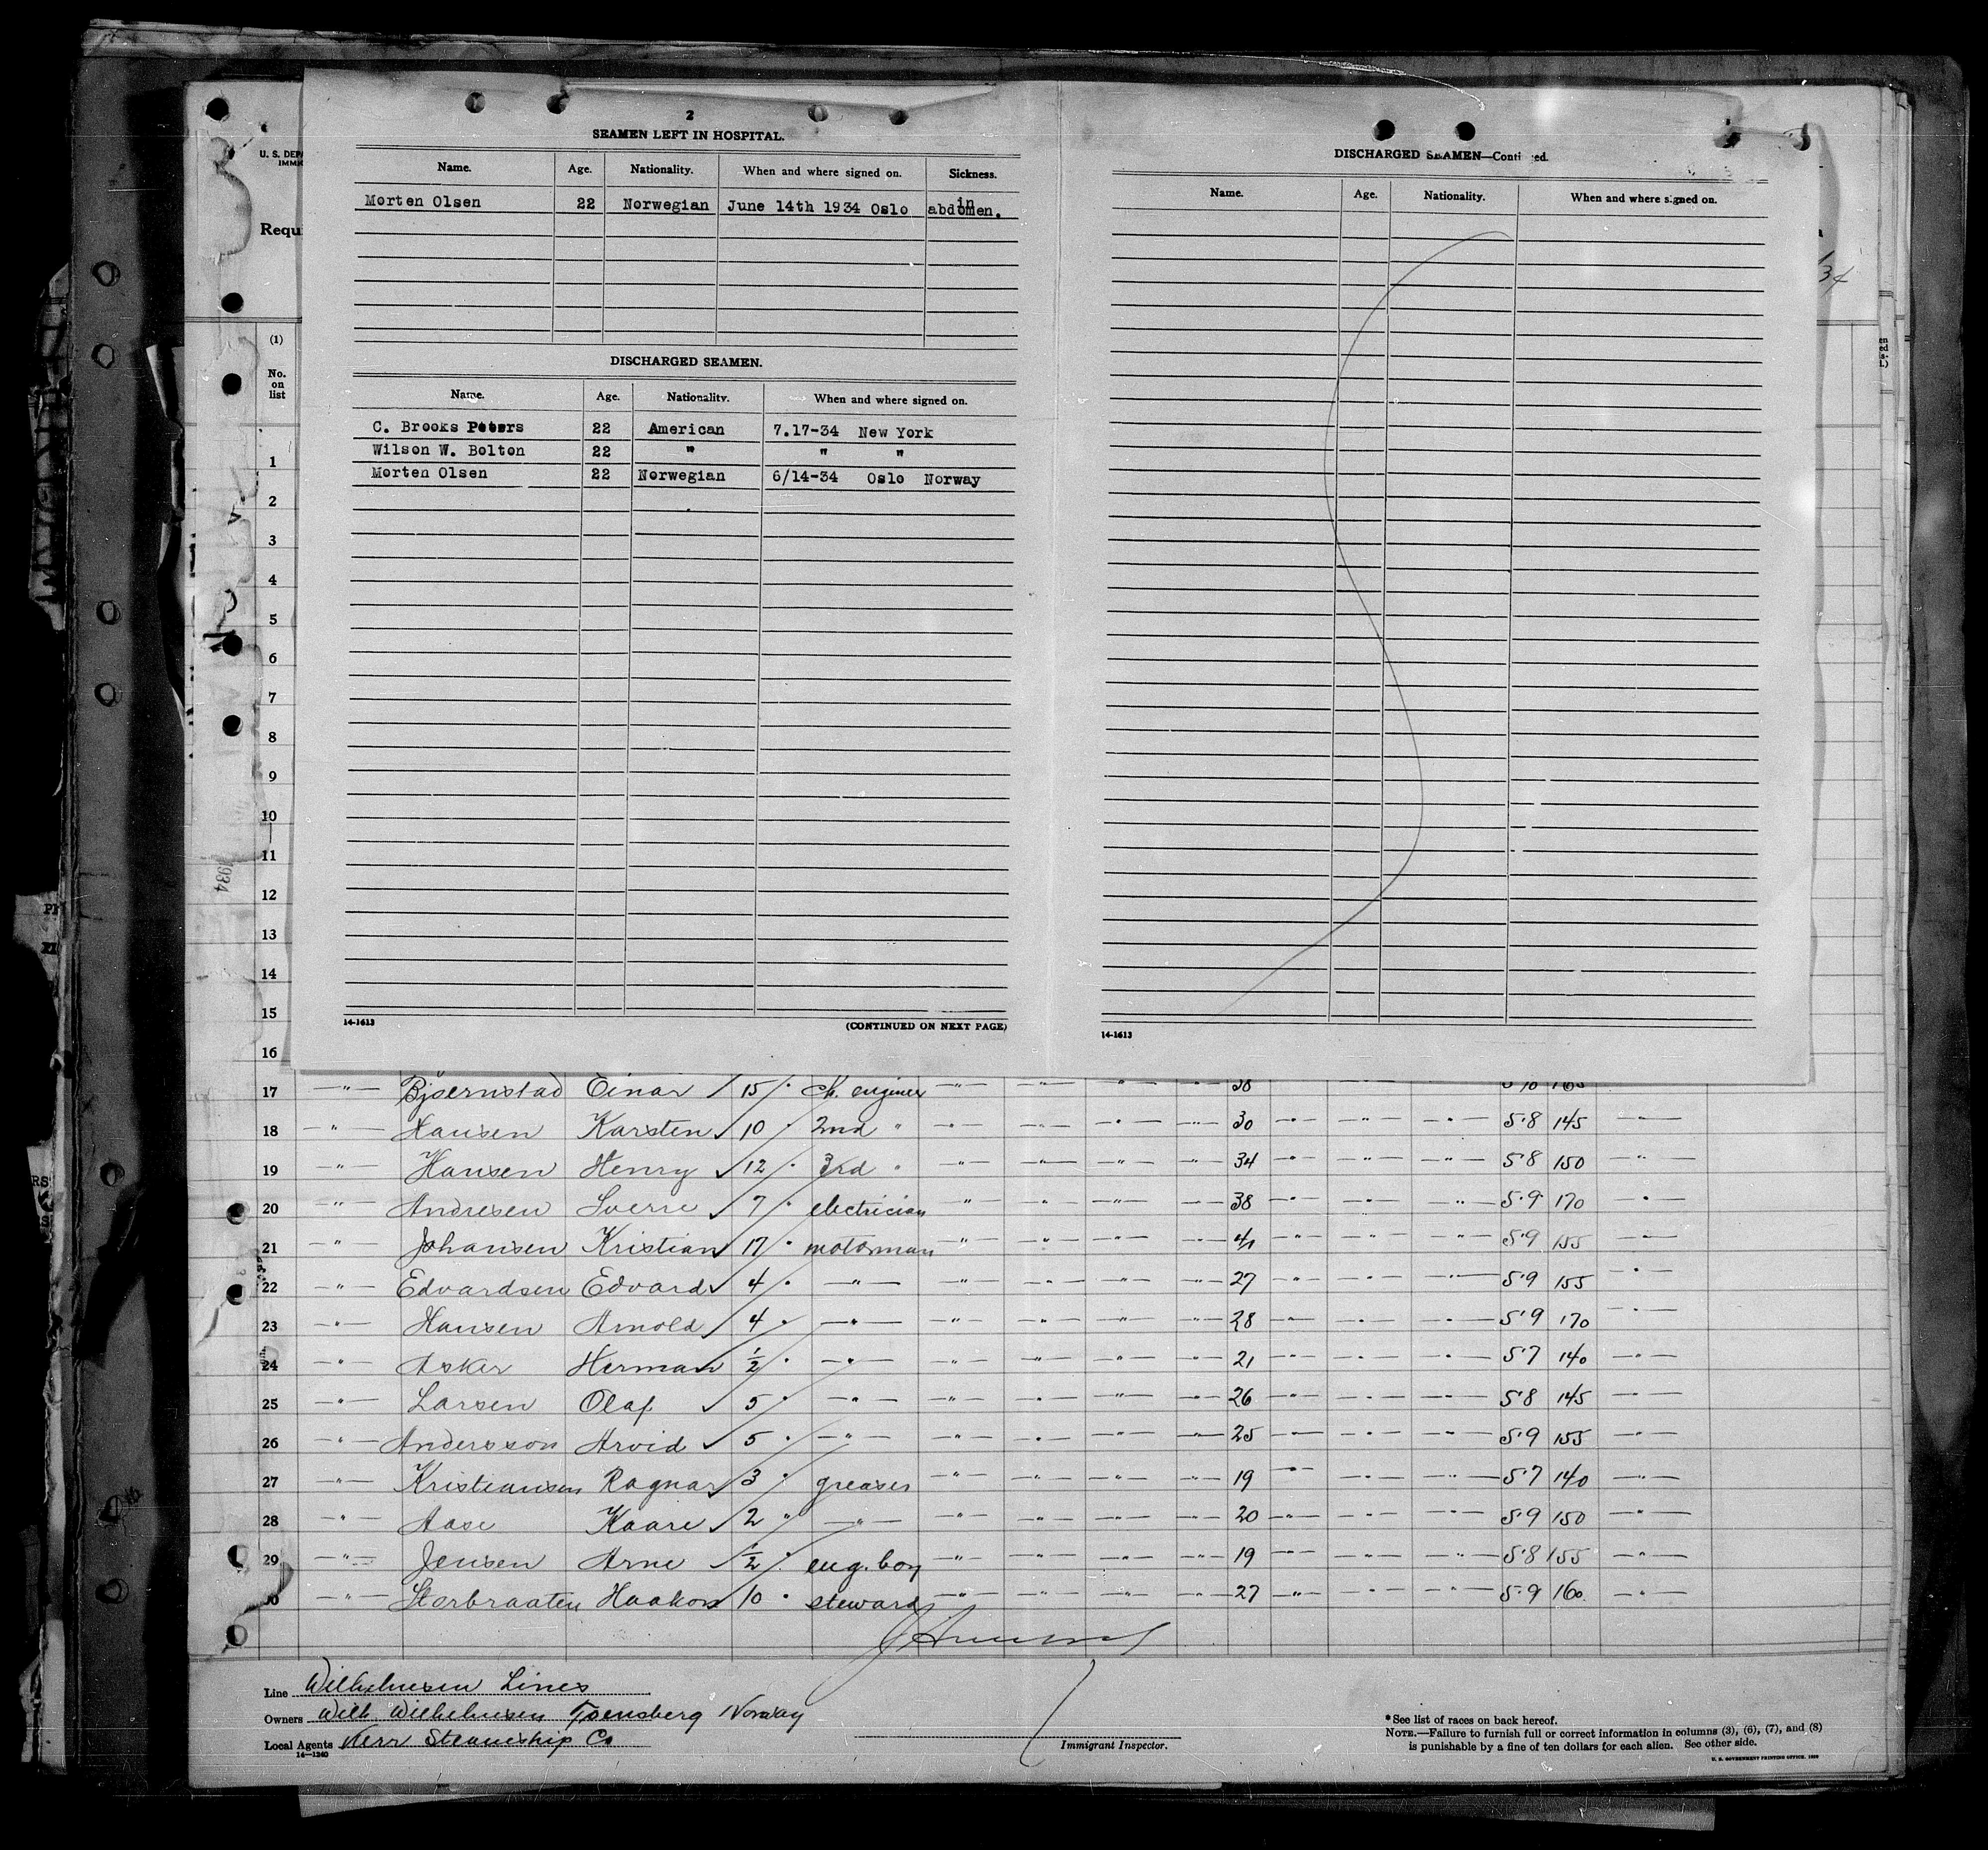 2
SEAMEN LEFT IN HOSPITAL.
Name. Age. Nationality. When and where signed on. Sickness.
Morten Olsen 22 Norwegian June 14th 1934 Oslo in abdomen.
DISCHARGED SEAMEN.
Name. Age. Nationality. When and where signed on.
C. Brooks Peters 22 American 7.17-34 New York
Wilson W. Bolton 22 " " "
Morten Olsen 22 Norwegian 6/14-34 Oslo Norway
14-1613 (CONTINUED ON NEXT PAGE)
DISCHARGED SEAMEN—Continued.
Name. Age. Nationality. When and where signed on.
14-1613
U. S. DEPA
IMMIG
Requi
34
(1)
No.
on
list
1
2
3
4
5
6
7
8
9
10
11
12
13
14
15
16
1934
17 " Bjoernstad Einar 15 " ch. engineer " " " " 38 " " " 5'10 165
18 " Hansen Karsten 10 " 2nd " " " " " 30 " " " 5'8 145 "
19 " Hansen Henry 12 " 3rd " " " " " 34 " " " 5'8 150 "
20 " Andresen Sverre 7 " electrician " " " " 38 " " " 5'9 170 "
21 " Johansen Kristian 17 " motorman " " " " 41 " " " 5'9 155 "
22 " Edvardsen Edvard 4 " " " " " " 27 " " " 5'9 155 "
23 " Hansen Arnold 4 " " " " " " 28 " " " 5'9 170 "
24 " Asker Herman 1/2 " " " " " " 21 " " " 5'7 140 "
25 " Larsen Olaf 5 " " " " " " 26 " " " 5'8 145 "
26 " Andersson Arvid 5 " " " " " " 25 " " " 5'9 155 "
27 " Kristiansen Ragnar 3 " greaser " " " " 19 " " " 5'7 140 "
28 " Aase Kaare 2 " " " " " " 20 " " " 5'9 150 "
29 " Jensen Arne 1/2 " eng. boy " " " " 19 " " " 5'8 155 "
30 " Storbraaten Haakon 10 " steward " " " " 27 " " " 5'9 160 "
Line Wilhelmsen Lines
Owners Wilh Wilhelmsen Toensberg Norway
Local Agents Kerr Steamship Co
14—1240
Immigrant Inspector.
*See list of races on back hereof.
NOTE.—Failure to furnish full or correct information in columns (3), (6), (7), and (8)
is punishable by a fine of ten dollars for each alien. See other side.